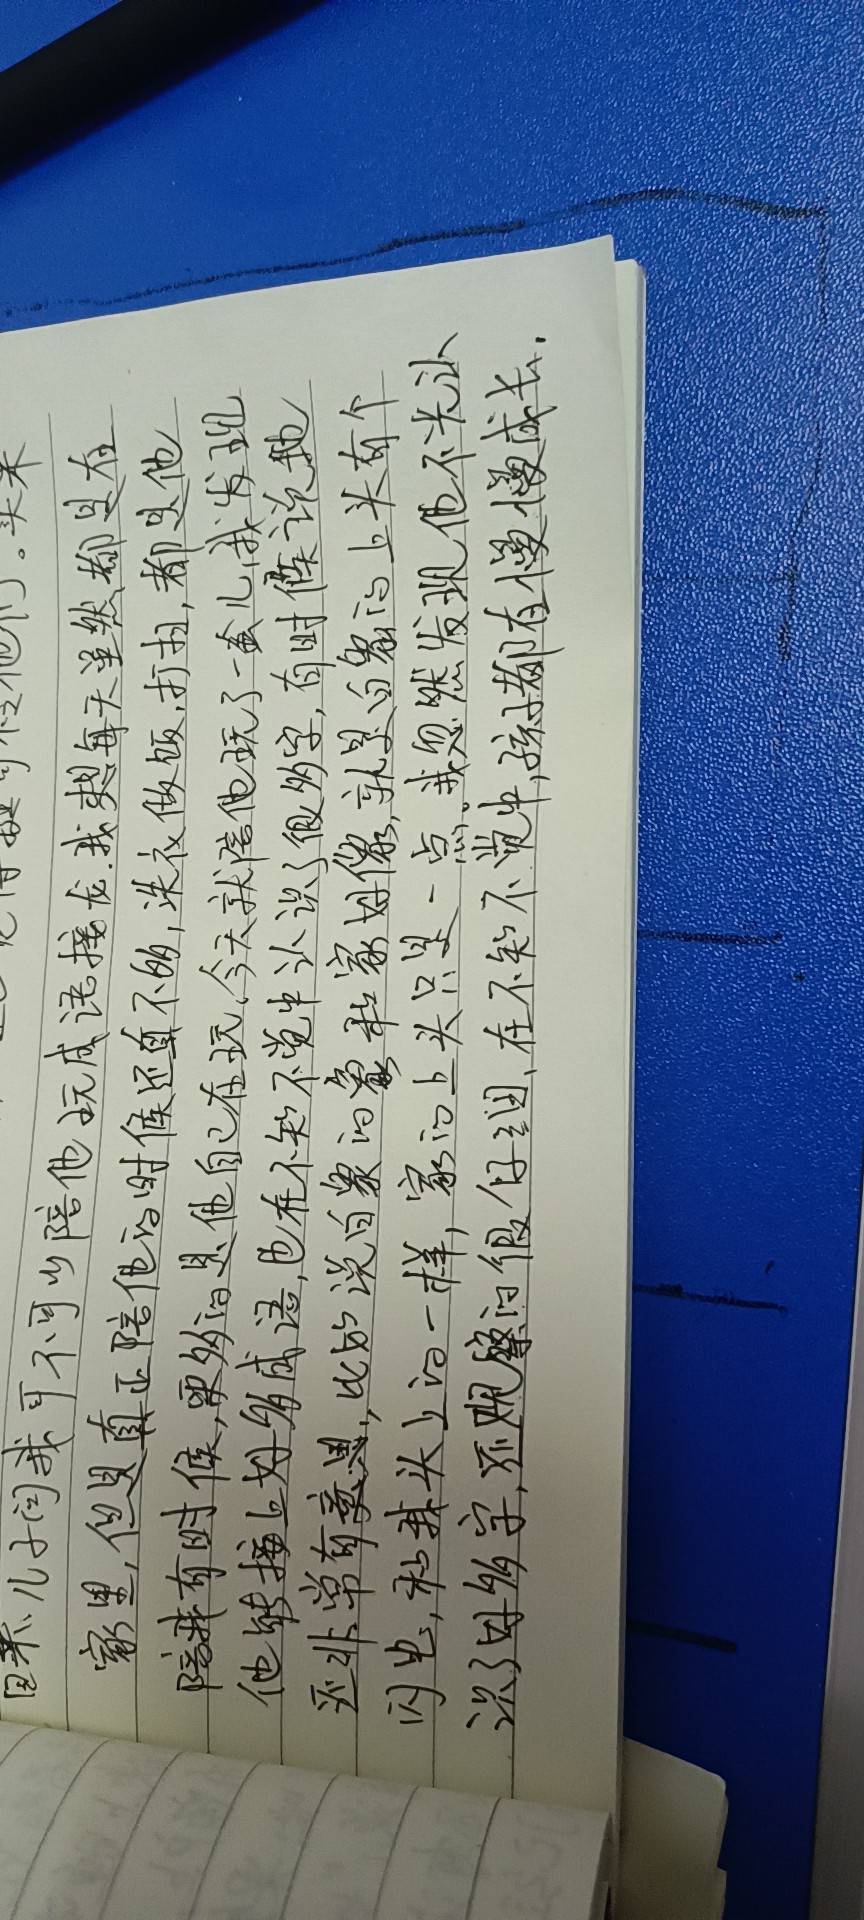 他们。买来
回来、儿子问我可不可以陪他玩成语接龙.我想每天虽然都是在
家里,但是真正陪他的时候还真不够,洗衣做饭,打扫,都是他
陪我有时候,更多的是他自己在玩,今天就陪他玩了一会儿,我发现
他能接上好多成语,也在不知不觉中认识了很多字,有时候说地
还非常有意思,比如说白象的象和家好像,就是白象的上头有个
闪电,和我头上的一样,家的上头只是一点。我忽然发现他不光认
识了好多字,还观察的很仔细、在不知不觉中,孩子都在慢慢成长.